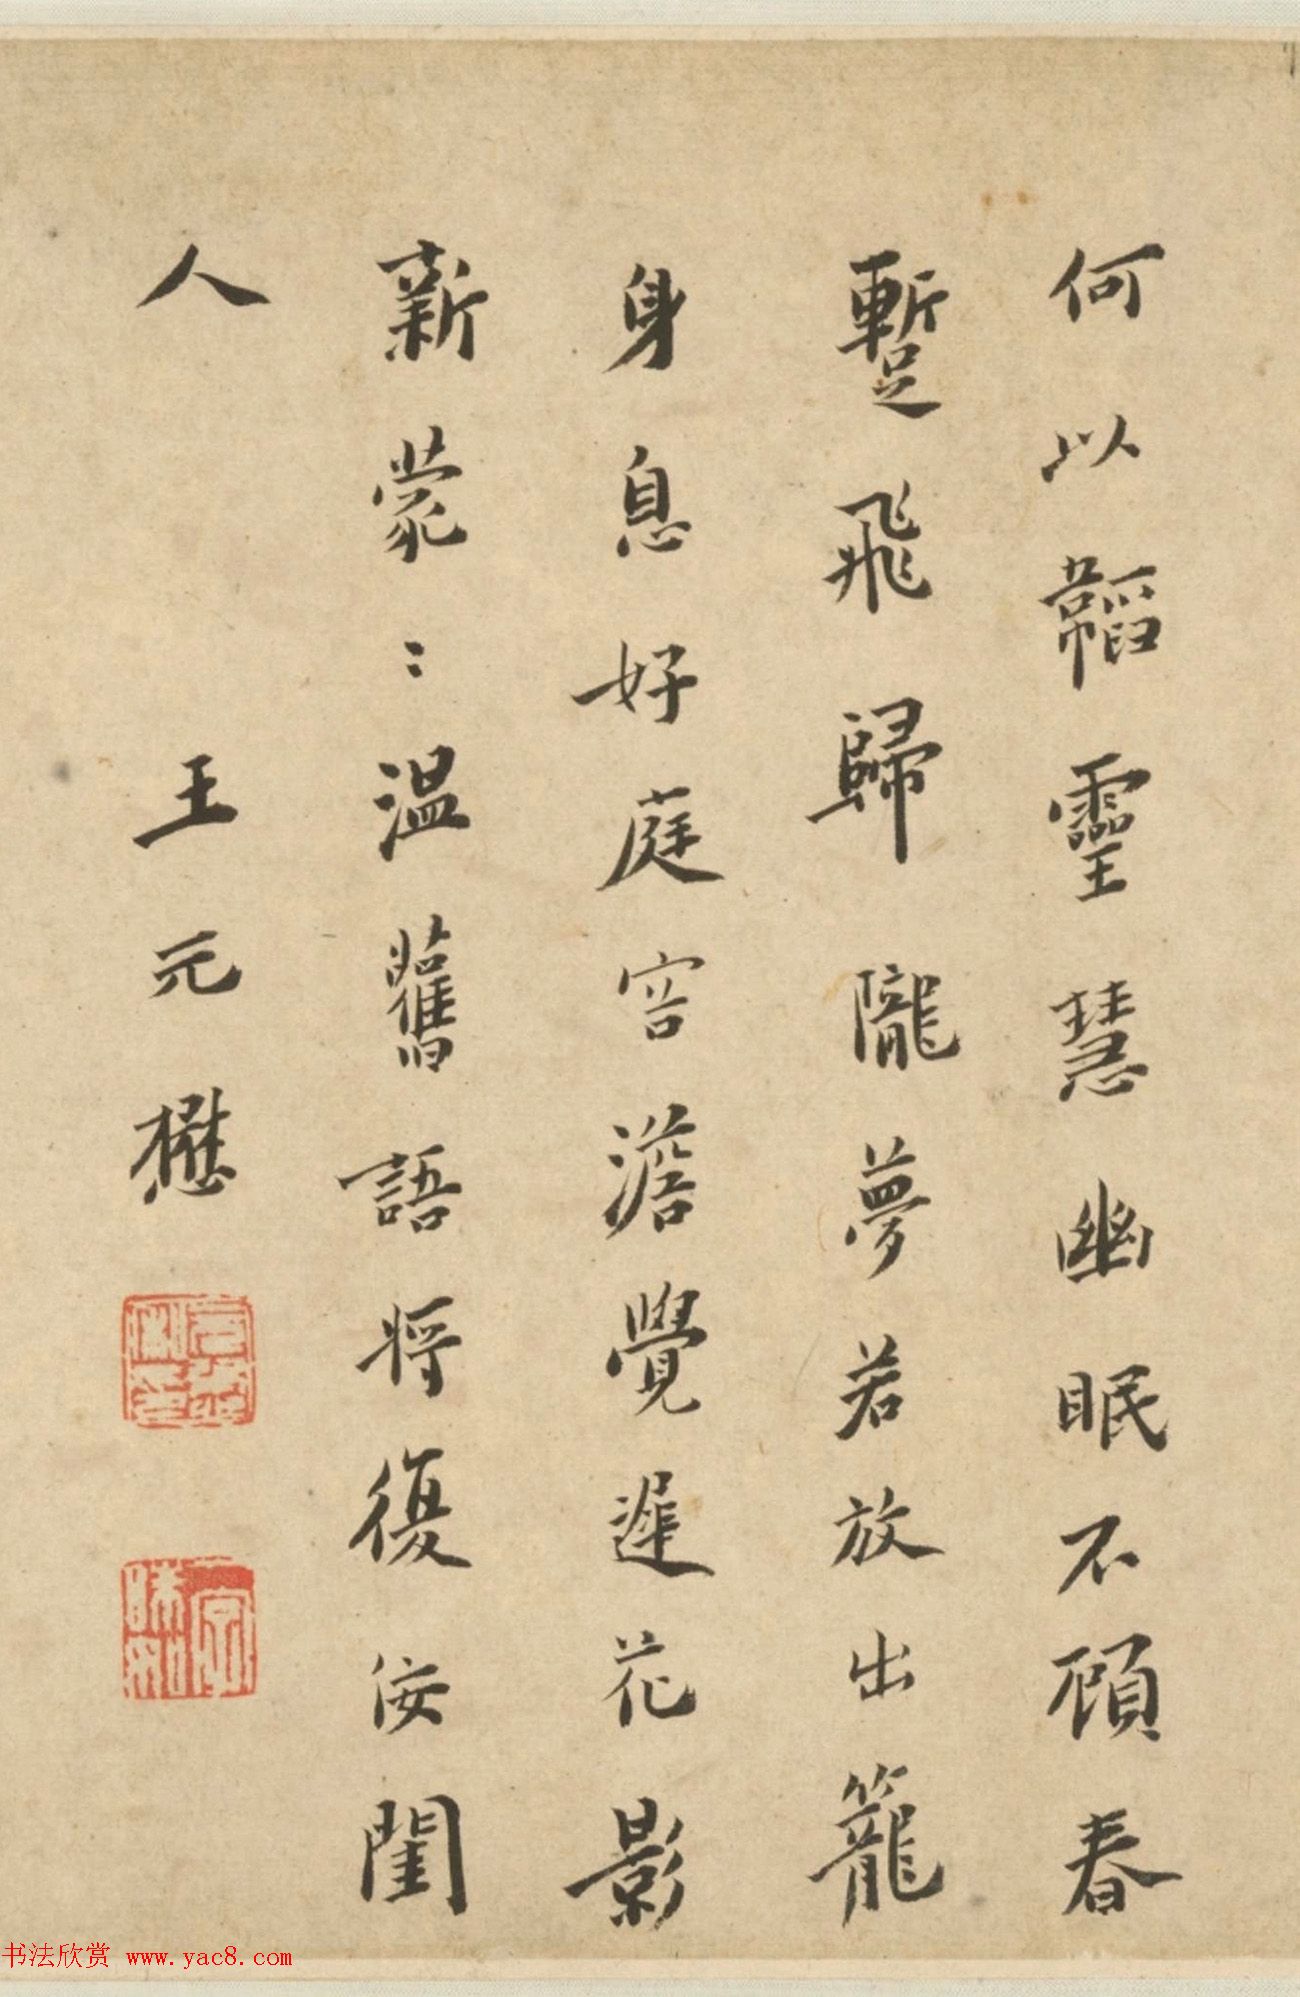 何以韜靈慧幽眠不顧春
蹔飛歸隴夢若放出籠
身息好庭容澹覺遲花影
新蒙〻溫舊語將復佞閨
人
王元懋
书法欣赏 www.yac8.com